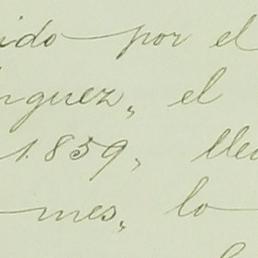 ido por el
nguez, el
1.859, lle
mes, lo